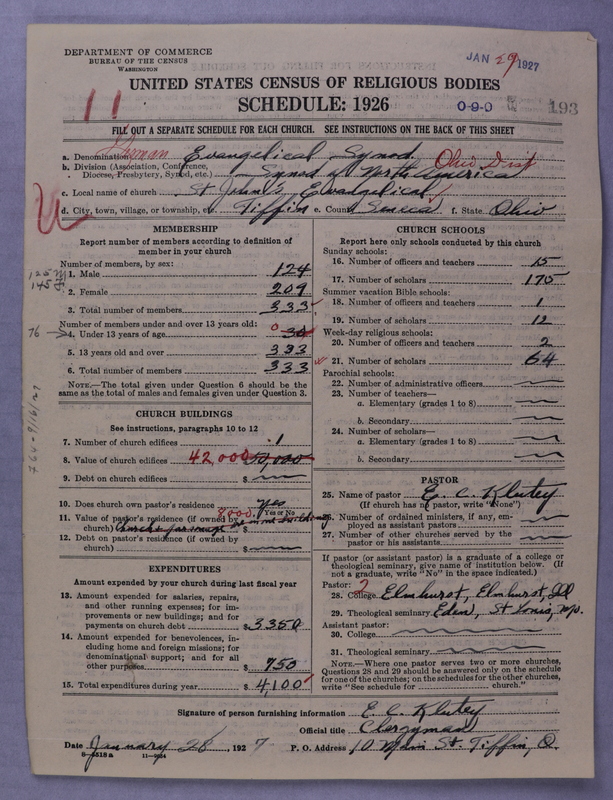 DEPARTMENT OF COMMERCE
BUREAU OF THE CENSUS
WASHINGTON
JAN 29 1927
UNITED STATES CENSUS OF RELIGIOUS BODIES
SCHEDULE: 1926
11
0-9-0
193
FILL OUT A SEPARATE SCHEDULE FOR EACH CHURCH. SEE INSTRUCTIONS ON THE BACK OF THIS SHEET
a. Denomination German Evangelical Synod. Ohio Dist
b. Division (Association, Conference, Diocese, Presbytery, Synod, etc.) Synod of North America
c. Local name of church St John's Evangelical
d. City, town, village, or township, etc. Tiffin e. County Seneca f. State Ohio
MEMBERSHIP
Report number of members according to definition of
member in your church
Number of members, by sex:
1. Male 124
2. Female 209
3. Total number of members 333
Number of members under and over 13 years old:
76
4. Under 13 years of age 0 30
5. 13 years old and over 333
6. Total number of members 333
NOTE.—The total given under Question 6 should be the
same as the total of males and females given under Question 3.
CHURCH BUILDINGS
See instructions, paragraphs 10 to 12
7. Number of church edifices 1
8. Value of church edifices 42,000 50,000
9. Debt on church edifices $
10. Does church own pastor's residence yes
Yes or No
11. Value of pastor's residence (if owned by church) 8000 $
12. Debt on pastor's residence (if owned by
church) $
EXPENDITURES
Amount expended by your church during last fiscal year
13. Amount expended for salaries, repairs,
and other running expenses; for im-
provements or new buildings; and for
payments on church debt $ 3350
14. Amount expended for benevolences, in-
cluding home and foreign missions; for
denominational support; and for all
other purposes $ 750
15. Total expenditures during year $ 4100
CHURCH SCHOOLS
Report here only schools conducted by this church
Sunday schools:
16. Number of officers and teachers 15
17. Number of scholars 175
Summer vacation Bible schools:
18. Number of officers and teachers 1
19. Number of scholars 12
Week-day religious schools:
20. Number of officers and teachers 2
21. Number of scholars 64
Parochial schools:
22. Number of administrative officers
23. Number of teachers—
a. Elementary (grades 1 to 8)
b. Secondary
24. Number of scholars—
a. Elementary (grades 1 to 8)
b. Secondary
PASTOR
25. Name of pastor E. C. Klutey
(If church has no pastor, write "None")
26. Number of ordained ministers, if any, em-
ployed as assistant pastors
27. Number of other churches served by the
pastor or his assistants
If pastor (or assistant pastor) is a graduate of a college or
theological seminary, give name of institution below. (If
not a graduate, write "No" in the space indicated.)
Pastor: 2
28. College Elmhurst, Elmhurst, Ill
29. Theological seminary Eden, St Louis, Mo.
Assistant pastor:
30. College
31. Theological seminary
NOTE.—Where one pastor serves two or more churches,
Questions 28 and 29 should be answered only on the schedule
for one of the churches; on the schedules for the other churches,
write "See schedule for church."
Signature of person furnishing information E. C. Klutey
Official title Clergyman
Date January 28, 1927. P. O. Address 10 Main St. Tiffin, O.
8-4518a 11-9224